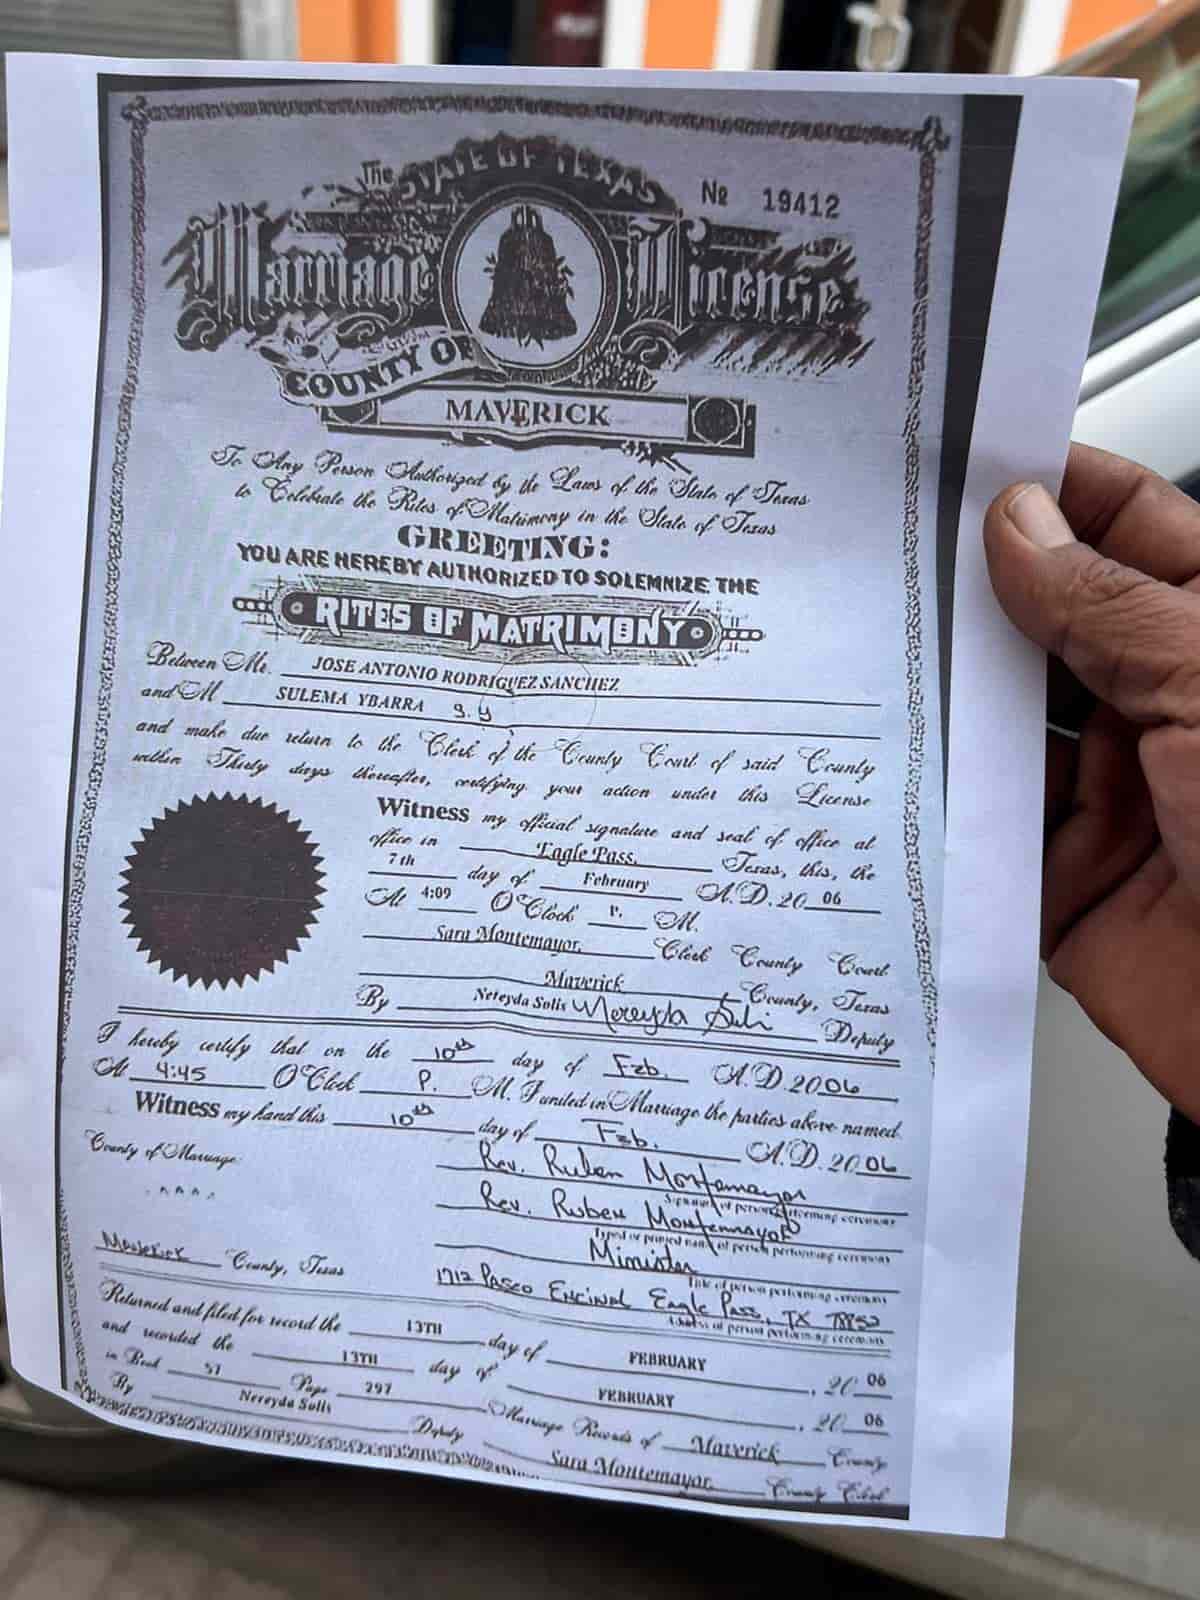 The STATE OF TEXAS
№ 19412
Marriage License
COUNTY OF
MAVERICK
To Any Person Authorized by the Laws of the State of Texas
to Celebrate the Rites of Matrimony in the State of Texas
GREETING:
YOU ARE HEREBY AUTHORIZED TO SOLEMNIZE THE
RITES OF MATRIMONY
Between Mr. JOSE ANTONIO RODRIGUEZ SANCHEZ
and M SULEMA YBARRA S.Y
and make due return to the Clerk of the County Court of said County
within Thirty days thereafter, certifying your action under this License
Witness my official signature and seal of office at
office in Eagle Pass, Texas, this, the
7th day of February A.D. 20 06
At 4:09 O'Clock P. M.
Sara Montemayor, Clerk County Court
Maverick County, Texas
By Nereyda Solis Nereyda Solis Deputy
I hereby certify that on the 10th day of Feb. A.D. 2006
At 4:45 O'Clock P. M. I united in Marriage the parties above named.
Witness my hand this 10th day of Feb. A.D. 2006
County of Marriage:
Rev. Ruben Montemayor
Signature of person performing ceremony
Rev. Ruben Montemayor
Typed or printed name of person performing ceremony
Minister
Title of person performing ceremony
Maverick County, Texas
1712 Paseo Encinal Eagle Pass, TX 78852
Address of person performing ceremony
Returned and filed for record the 13TH day of FEBRUARY, 20 06
and recorded the 13TH day of FEBRUARY, 20 06
in Book 57 Page 297 Marriage Records of Maverick County
By Nereyda Solis Deputy Sara Montemayor, County Clerk